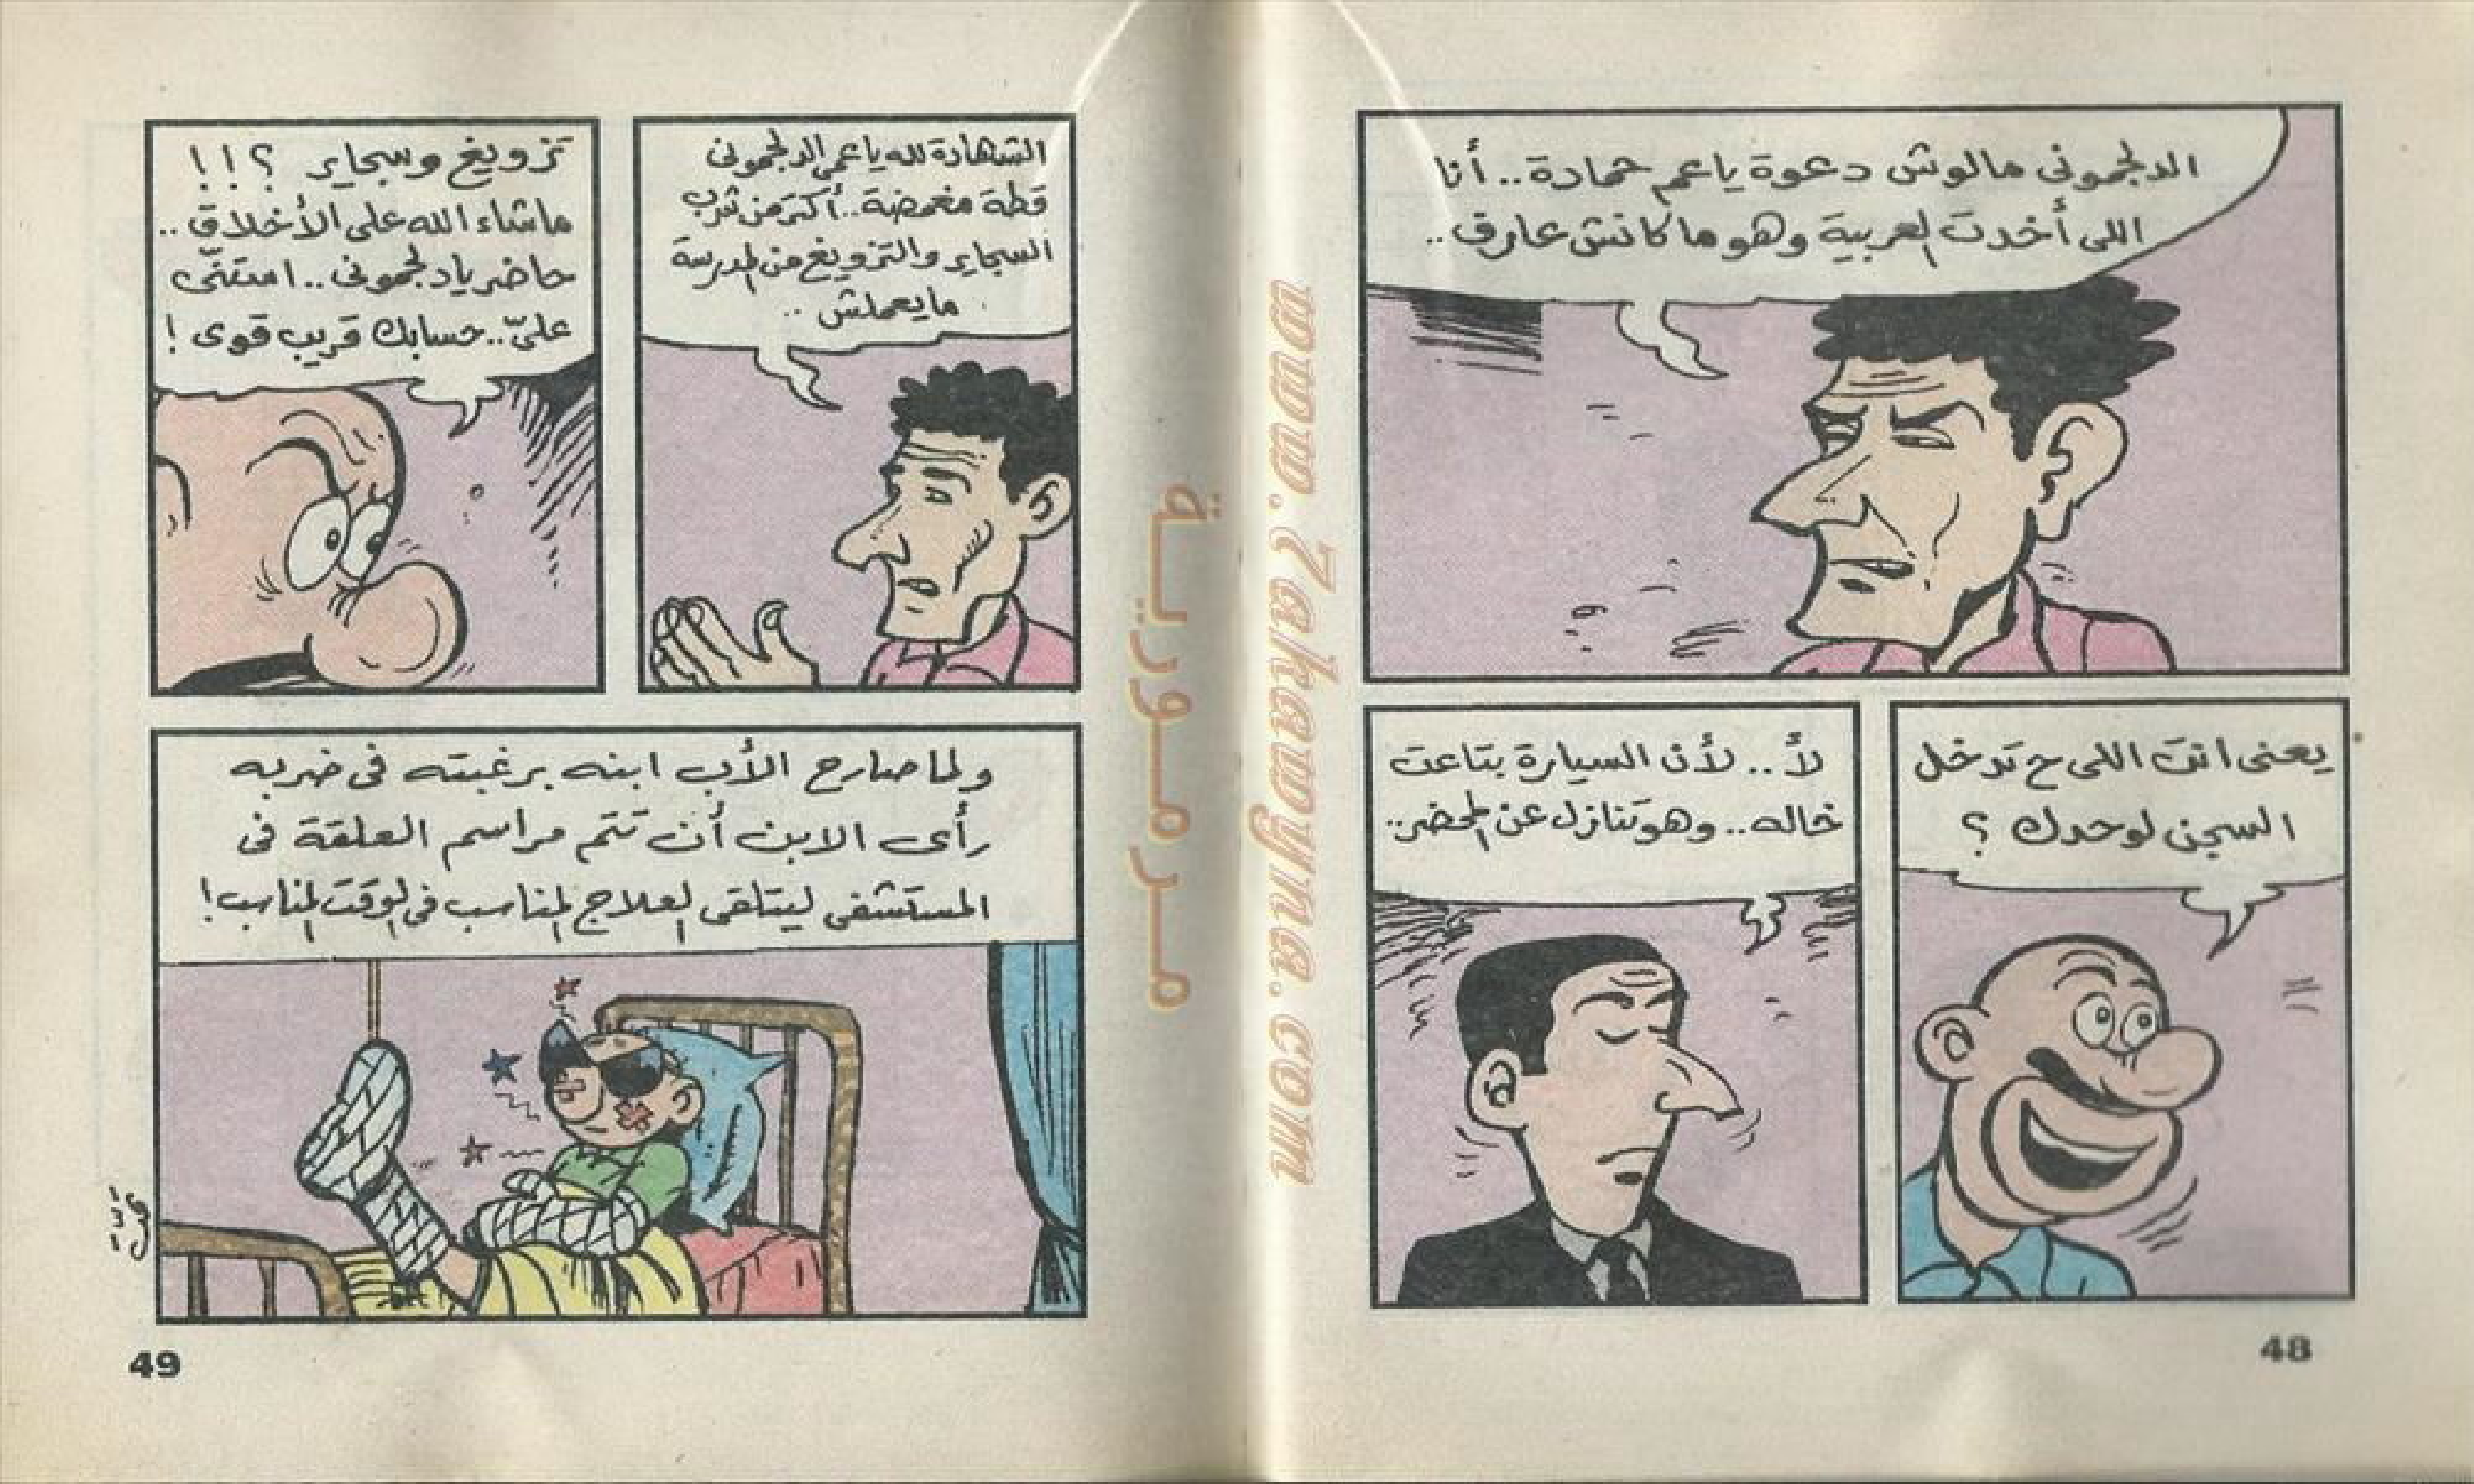 الدلجمونى مالوش دعوة ياعم حمادة.. أنا
اللى أخدت العربية وهو ماكانش عارف..
يعنى انت اللى ح تدخل
السجن لوحدك ؟
لأ.. لأن السيارة بتاعت
خاله.. وهو تنازل عن المحضر..
48
الشهادة لله ياعمى الدلجمونى
قطة مغمضة.. أكتر من شرب
السجاير والتزويغ من المدرسة
مايعملش ..
تزويغ وسجاير ؟!!
ماشاء الله على الأخلاق ..
حاضر يادلجمونى .. استنّى
علىّ.. حسابك قريب قوى !
ولما صارح الأب ابنه برغبته فى ضربه
رأى الابن أن تتم مراسم العلقة فى
المستشفى ليتلقى العلاج المناسب فى الوقت المناسب!
49
مرمورية
www.7akawyna.com